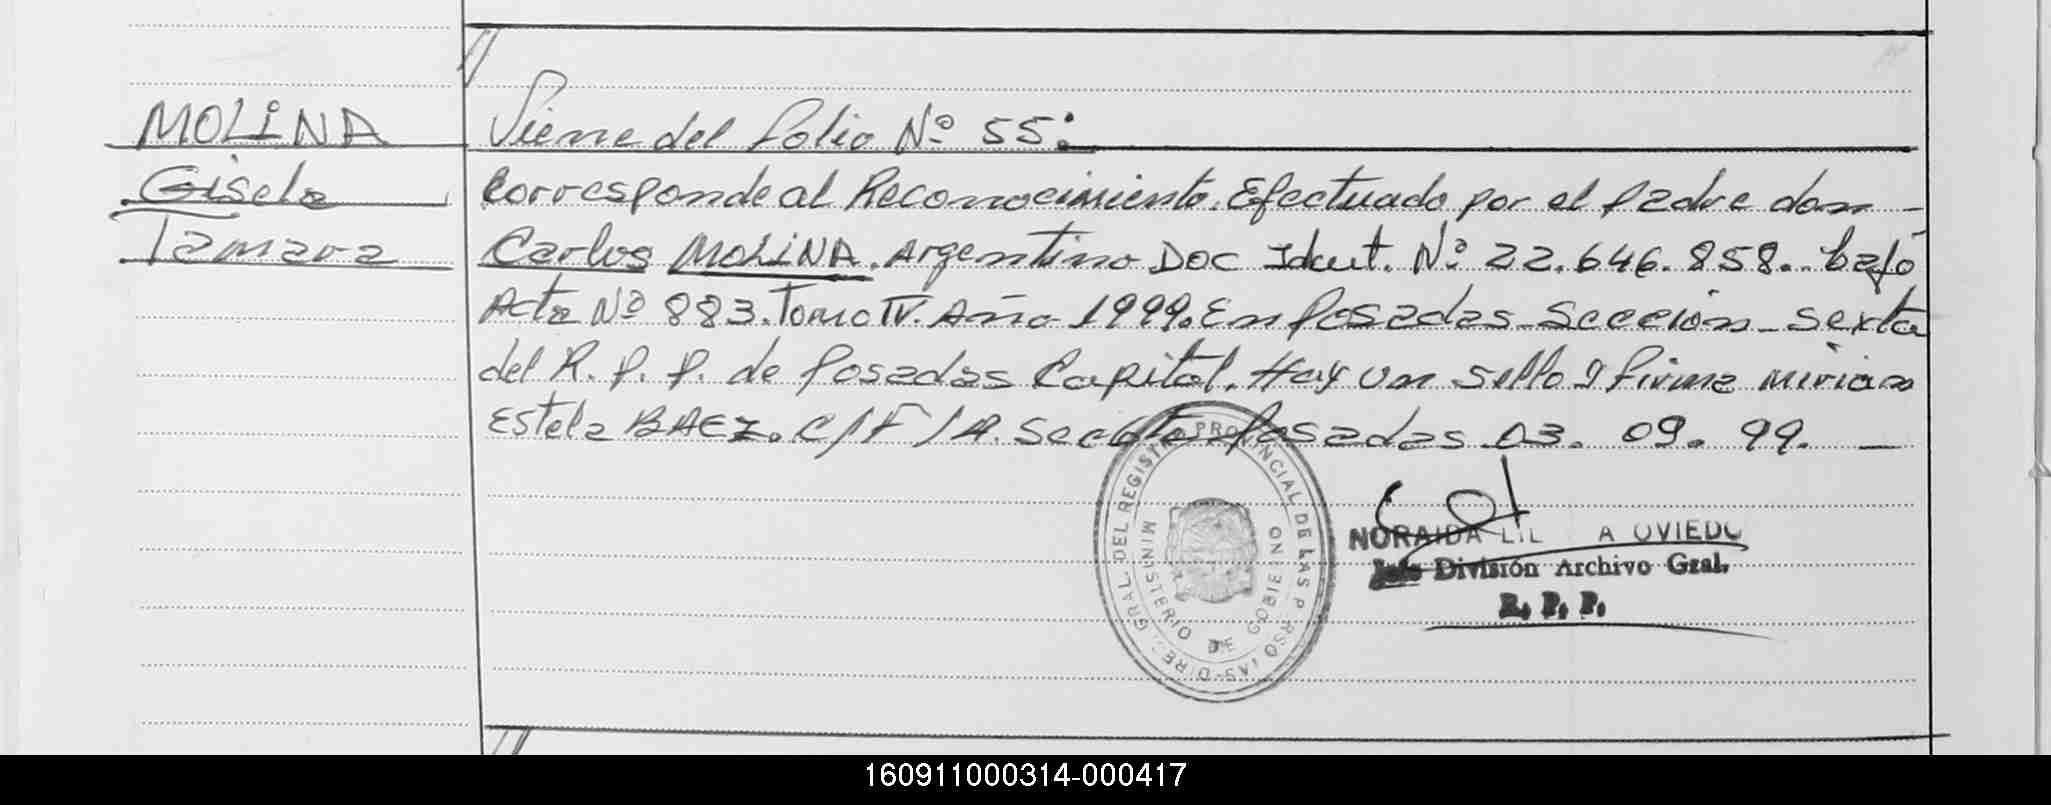 MOLINA
Gisela
Tamara
Viene del folio Nº 55:
Corresponde al Reconocimiento. Efectuado por el padre don
Carlos MOLINA. Argentino Doc Ident. Nº 22.646.858. bajo
Acta Nº 883. Tomo IV. Año 1999. En Posadas Sección Sexta
del R. P. P. de Posadas Capital. Hay un sello y firma Mirian
Estela BAEZ. C/F/A. Secc 6ta Posadas 03. 09. 99.
DIREC. GRAL. DEL REGISTRO PROVINCIAL DE LAS PERSONAS
MINISTERIO DE GOBIERNO
NORAIDA LIL A OVIEDO
Jefe División Archivo Gral.
R. P. P.
160911000314-000417